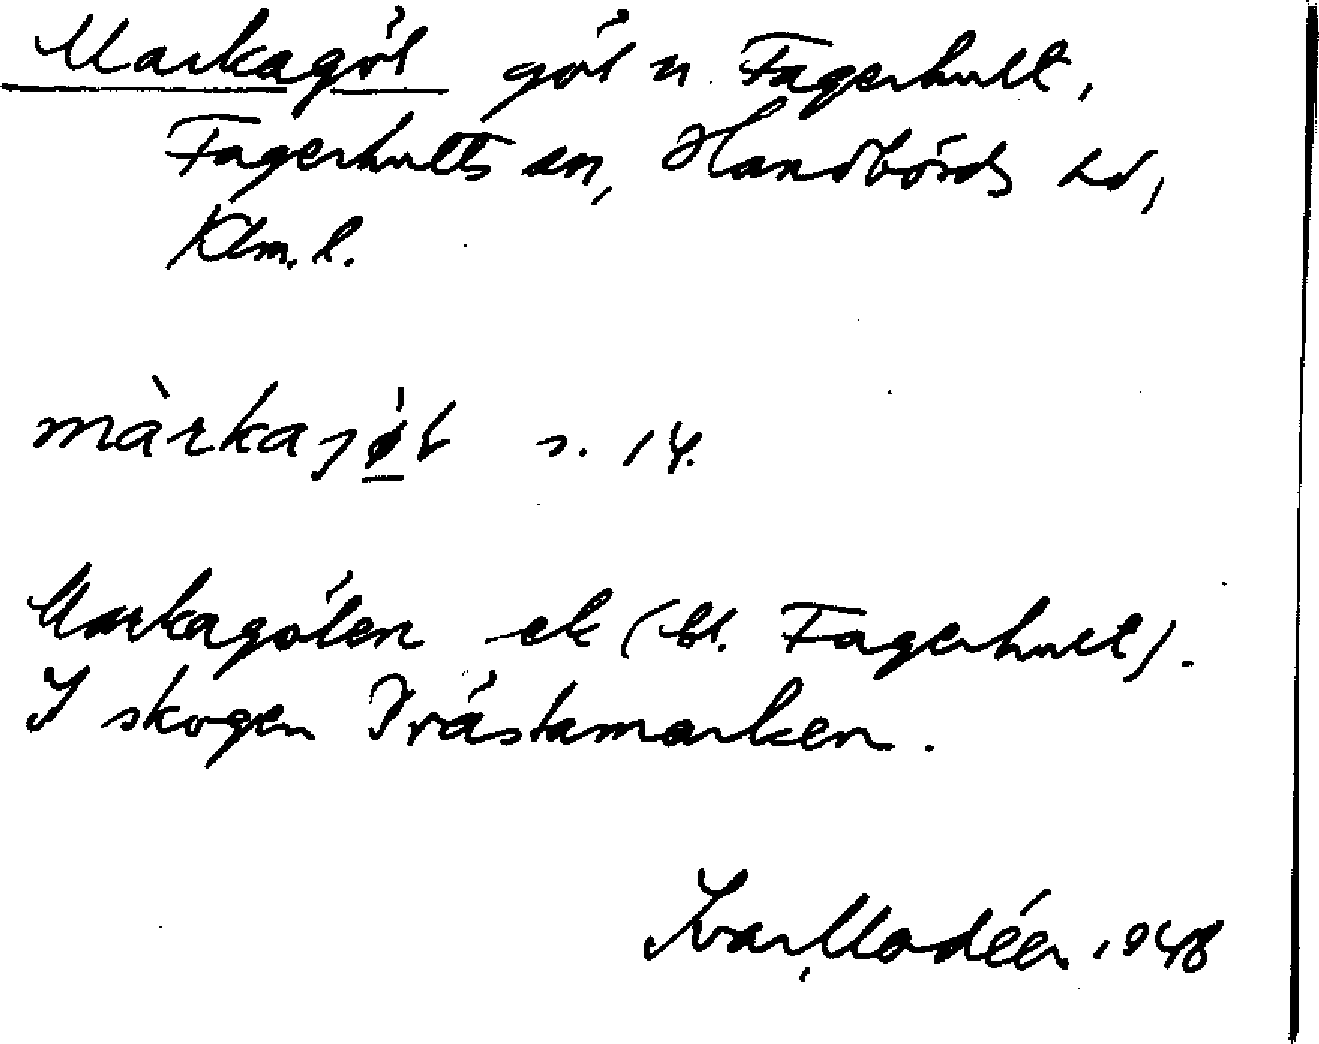 Markagöl göl n. Fagerhult,
Fagerhults sn, Handbörds hd,
Klm. l.
màrkajø̀l s. 14.
Markagölen ek (bl. Fagerhult).
I skogen Prästamarken.
Ivar Modéer 1948